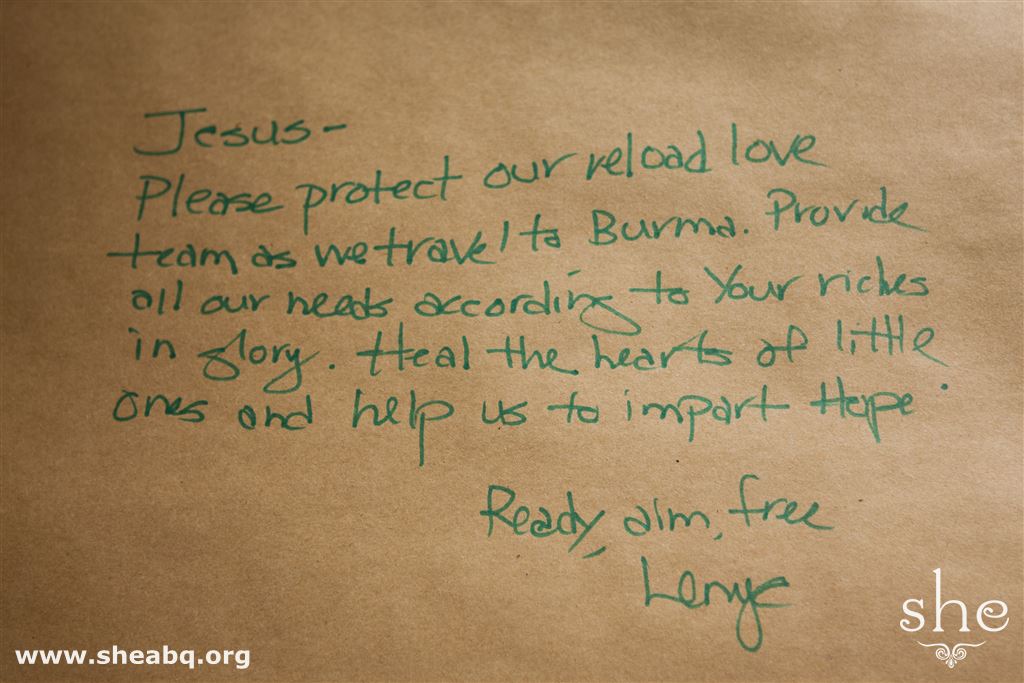 Jesus-
Please protect our reload love
team as we travel to Burma. Provide
all our needs according to Your riches
in glory. Heal the hearts of little
ones and help us to impart Hope.
Ready, aim, free
Lenya
she
www.sheabq.org